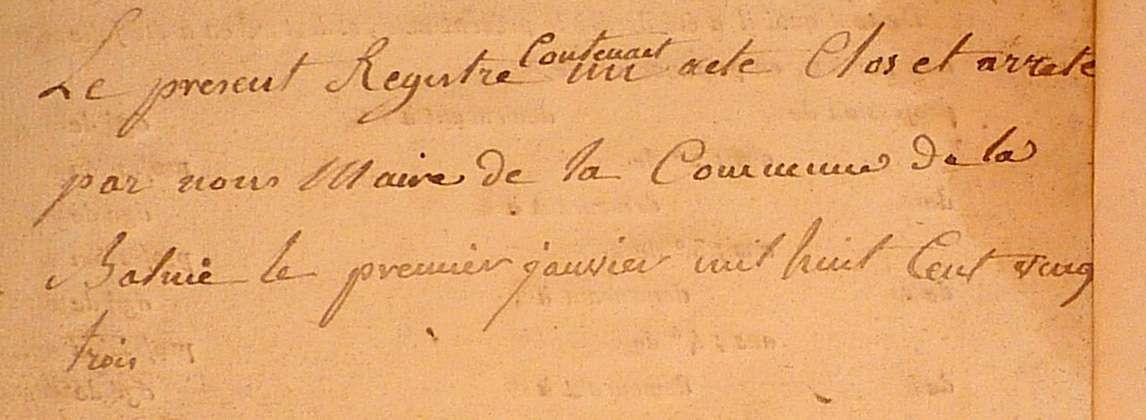 Le present Registre Contenant un acte Clos et arrete
par nous Maire de la Commune de la
Balme le premier janvier mil huit Cent ving
trois